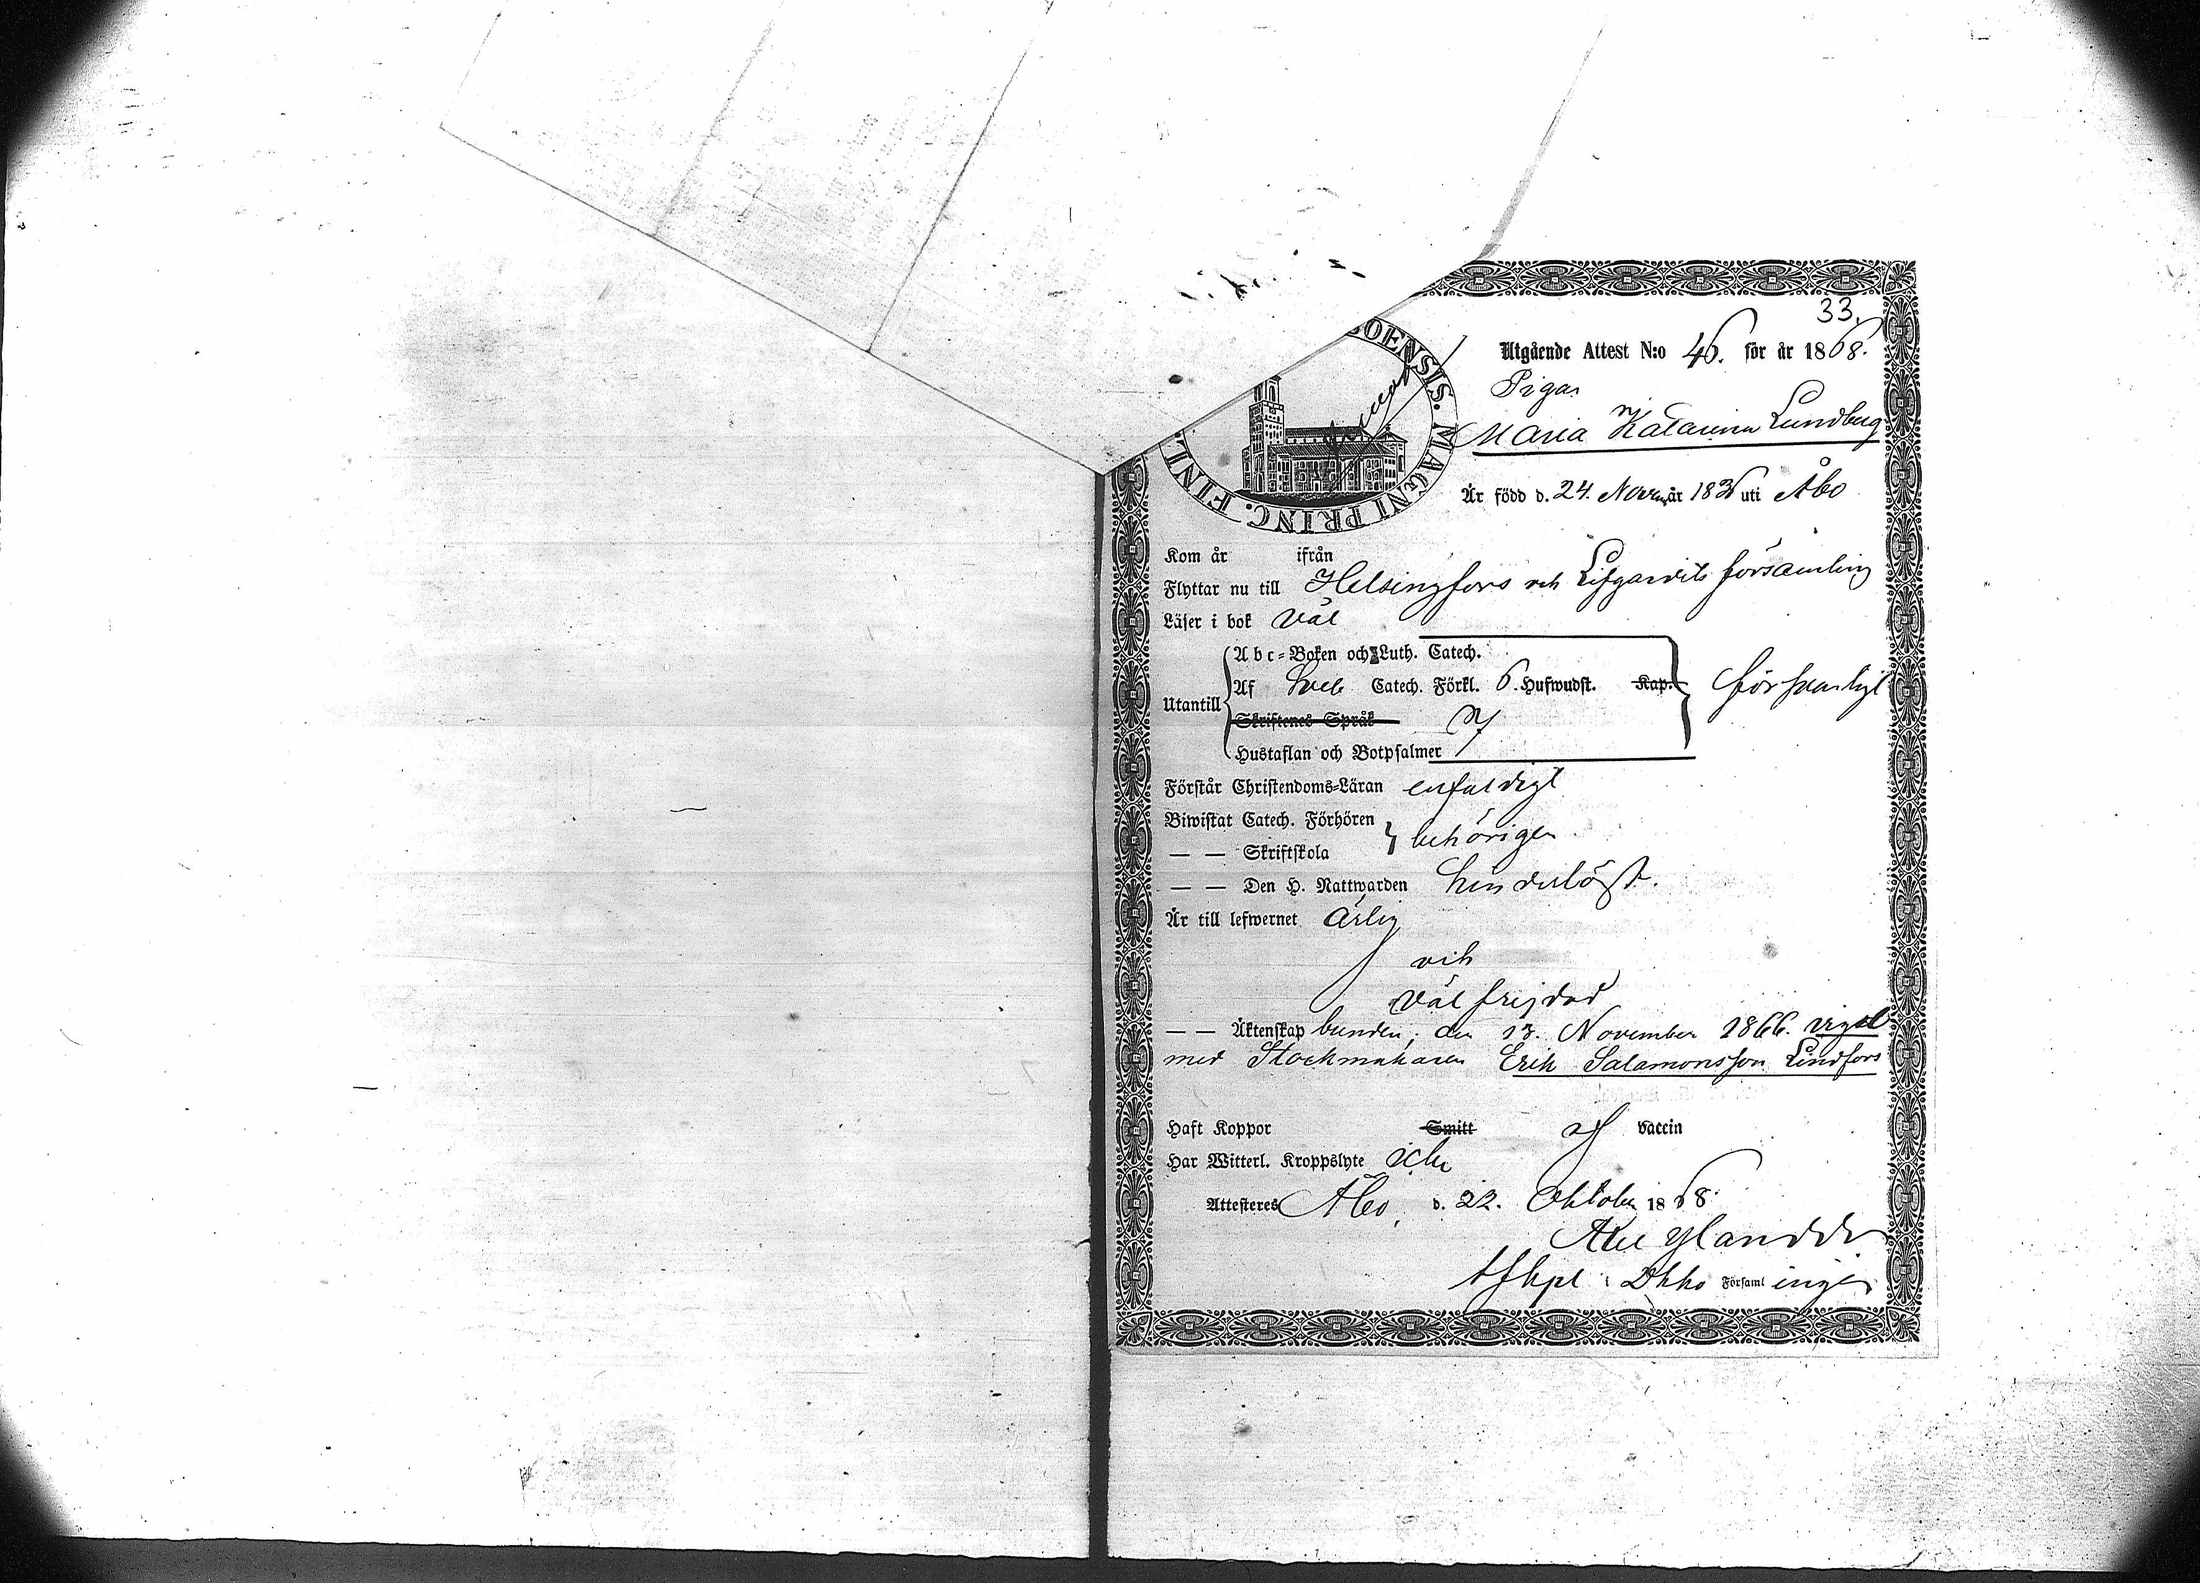 33.
Utgående Attest N:o 46. för år 1868.
Pigan
Maria Katarina Lundberg
OENSIS. MAGNI PRINC. FINL.
Är född d. 24. Novem år 1836 uti Åbo
Kom år ifrån
Flyttar nu till Helsingfors och Lifgardets församling
Läser i bok väl
Abc=Boken och Luth. Catech.
Af Sveb. Catech. Förkl. 6. Hufwudst. Kap. försvarligt
Utantill
Skriftenes Språk
Hustaflan och Botpsalmer
Förstår Christendoms=Läran enfaldigt
Biwistat Catech. Förhören behörigen
— — Skriftskola
— — Den H. Nattwarden hinderlöst.
Är till lefwernet ärlig
och
väl frejdad
— — Äktenskap bunden; den 13. November 1866. vigd
med Stockmakaren Erik Salamonsson Lindfors
Haft Koppor Smitt af vaccin
Har Witterl. Kroppslyte icke
Attesteres Åbo, d. 22. Oktober 1868.
Ylander
i Församlingen